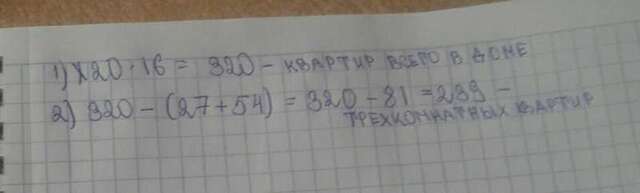 1) 20 · 16 = 320 - КВАРТИР ВСЕГО В ДОМЕ
2) 320 - (27 + 54) = 320 - 81 = 239 -
ТРЕХКОМНАТНЫХ КВАРТИР